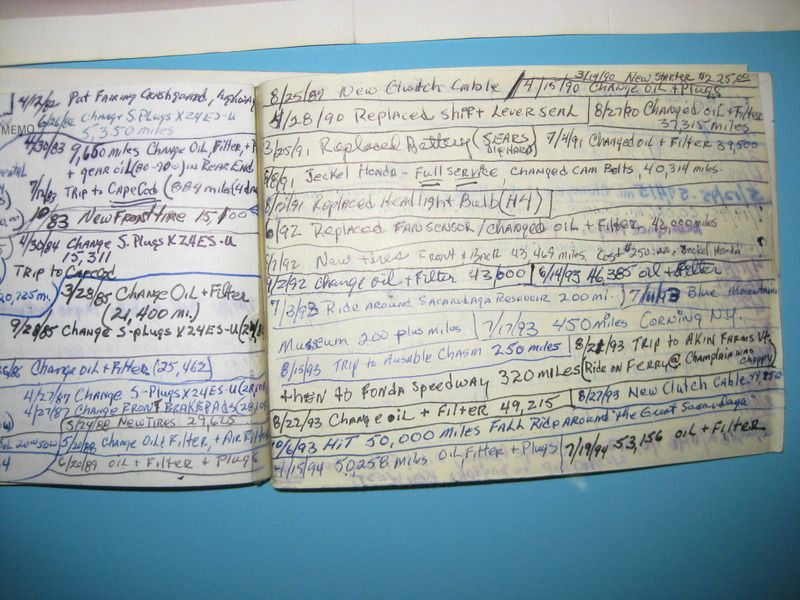 MEMO
4/12/82 Put Fairing Crashguard,
6/26/82 Change S.Plugs X24ES-U
5,350 miles
4/30/83 9,650 miles Change Oil, Filter, + P
+ gear oil (80-90w) in Rear End
7/1/83 Trip to Cape Cod (884 miles (4 da
10/83 New Front tire 15,100
4/30/84 Change S.Plugs X24ES-U
15,311
Trip to Cape Cod
3/28/85 Change Oil + Filter
(21,400 mi.)
9/28/85 Change S-plugs X24ES-U
Change oil + Filter (25,462)
4/27/87 Change S-Plugs X24ES-U (28,10
4/27/87 Change Front Brake Pads (28,10
5/24/88 New Tires 29,625
5/20/88 Change Oil & Filter, + Air Filt
6/20/89 Oil + Filter, + Plugs
3/14/90 New Starter $225.00
8/25/89 New Clutch Cable 4/15/90 Change Oil + Plugs
4/28/90 Replaced Shift Lever Seal 8/27/90 Changed Oil + Filter
37,315 miles
3/25/91 Replaced Battery (Sears DieHard) 7/4/91 Changed oil + Filter 39,500
8/8/91 Jeckel Honda - Full Service Changed Cam Bolts, 40,314 miles.
8/12/91 Replaced Headlight Bulb (H4)
6/92 Replaced Fan Sensor/Changed Oil + Filter 42,000 miles
7/92 New tires Front & Back 43,469 miles, Cost $250.22, Jeckel Honda
9/2/92 Change oil + Filter 43,600 6/14/93 46,385 oil + filter
7/3/93 Ride Around Sacandaga Reservoir 200 mi. 7/11/93 Blue Mountain
Museum 200 plus miles 7/17/93 450 miles Corning NY.
8/15/93 Trip to Ausable Chasm 250 miles 8/21/93 Trip to Akin Farms Vt
+ then to Fonda Speedway 320 miles (Ride on Ferry @ Champlain was choppy)
8/22/93 Change oil + Filter 49,215 8/27/93 New Clutch Cable
10/6/93 Hit 50,000 Miles Fall Ride Around "The Great Sacandaga"
4/15/94 50,258 Miles Oil, Filter + Plugs 7/19/94 53,156 oil + Filter